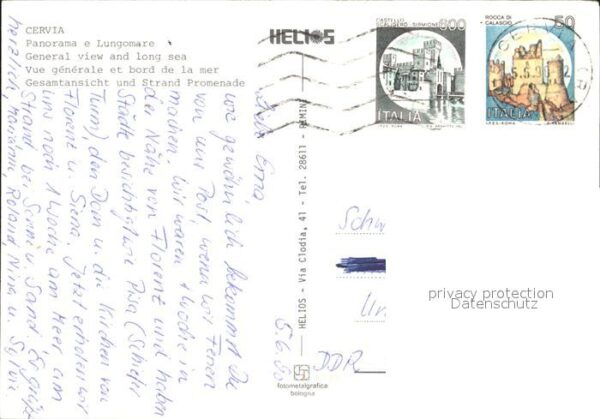 CERVIA
Panorama e Lungomare
General view and long sea
Vue générale et bord de la mer
Gesamtansicht und Strand Promenade
HELIOS
CASTELLO SCALIGERO SIRMIONE 600
ITALIA
I.P.Z.S. ROMA
ROCCA DI CALASCIO 50
ITALIA
I.P.Z.S. ROMA
CERVIA
HELIOS - Via Clodia, 41 - Tel. 28611 - RIMINI
Erna
wie gewöhnlich bekommst Du
von uns Post, wenn wir Ferien
machen. Wir waren 1 Woche in
der Nähe von Florenz und haben
Städte besichtigt wie Pisa (Schiefer
Turm) den Dom u. die Kirchen von
Florenz u. Siena. Jetzt erholen wir
uns noch 1 Woche am Meer am
Strand bei Sonne u. Sand. Es grüßen
herzlich, Roland Nina u. Sylvie
5.6.
Schw
DDR
privacy protection
Datenschutz
fotometalgrafica
bologna